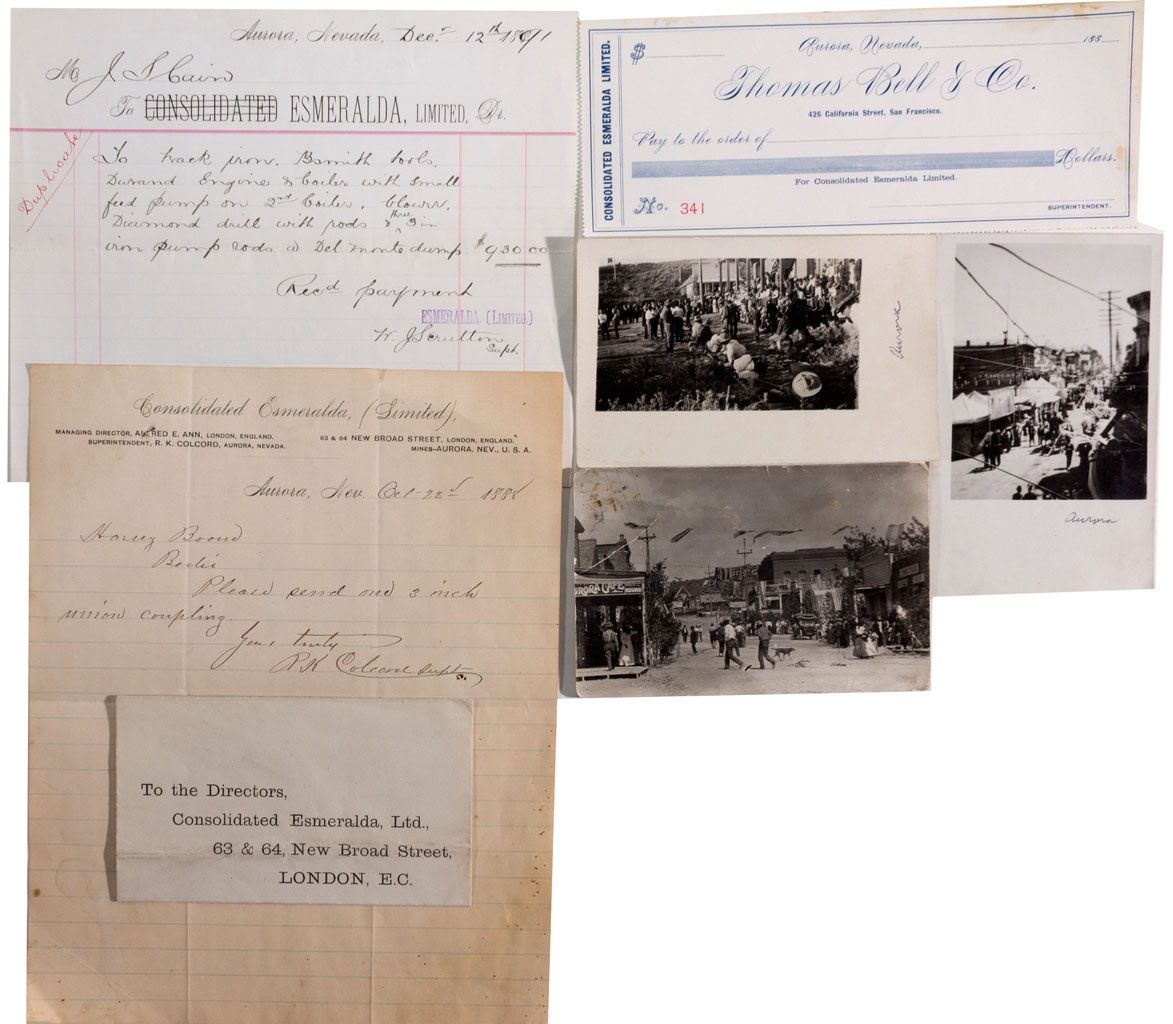 Aurora, Nevada, Decr 12th 1891
M J S Cain
To CONSOLIDATED ESMERALDA, LIMITED, Dr.
Duplicate
To track iron, Bsmith tools,
Durand Engine & boiler with small
feed pump on 2nd boiler, blower,
Diamond drill with rods & three 3 in
iron pump rods @ Del monte dump $930.00
Recd payment
ESMERALDA, (LIMITED.)
W. J Scrutton
Supt.
CONSOLIDATED ESMERALDA LIMITED.
$
Aurora, Nevada, 188
Thomas Bell & Co.
426 California Street, San Francisco.
Pay to the order of
Dollars.
For Consolidated Esmeralda Limited.
No. 341
SUPERINTENDENT.
Aurora
Aurora
Consolidated Esmeralda, (Limited),
MANAGING DIRECTOR, ALFRED E. ANN, LONDON, ENGLAND.
SUPERINTENDENT, R. K. COLCORD, AURORA, NEVADA.
63 & 64 NEW BROAD STREET, LONDON, ENGLAND,
MINES-AURORA, NEV., U. S. A.
Aurora, Nev. Oct-22d 1888
Harvey Boone
Bodie
Please send one 3 inch
union coupling.
Yours truly
R K Colcord Supt.
To the Directors,
Consolidated Esmeralda, Ltd.,
63 & 64, New Broad Street,
LONDON, E.C.